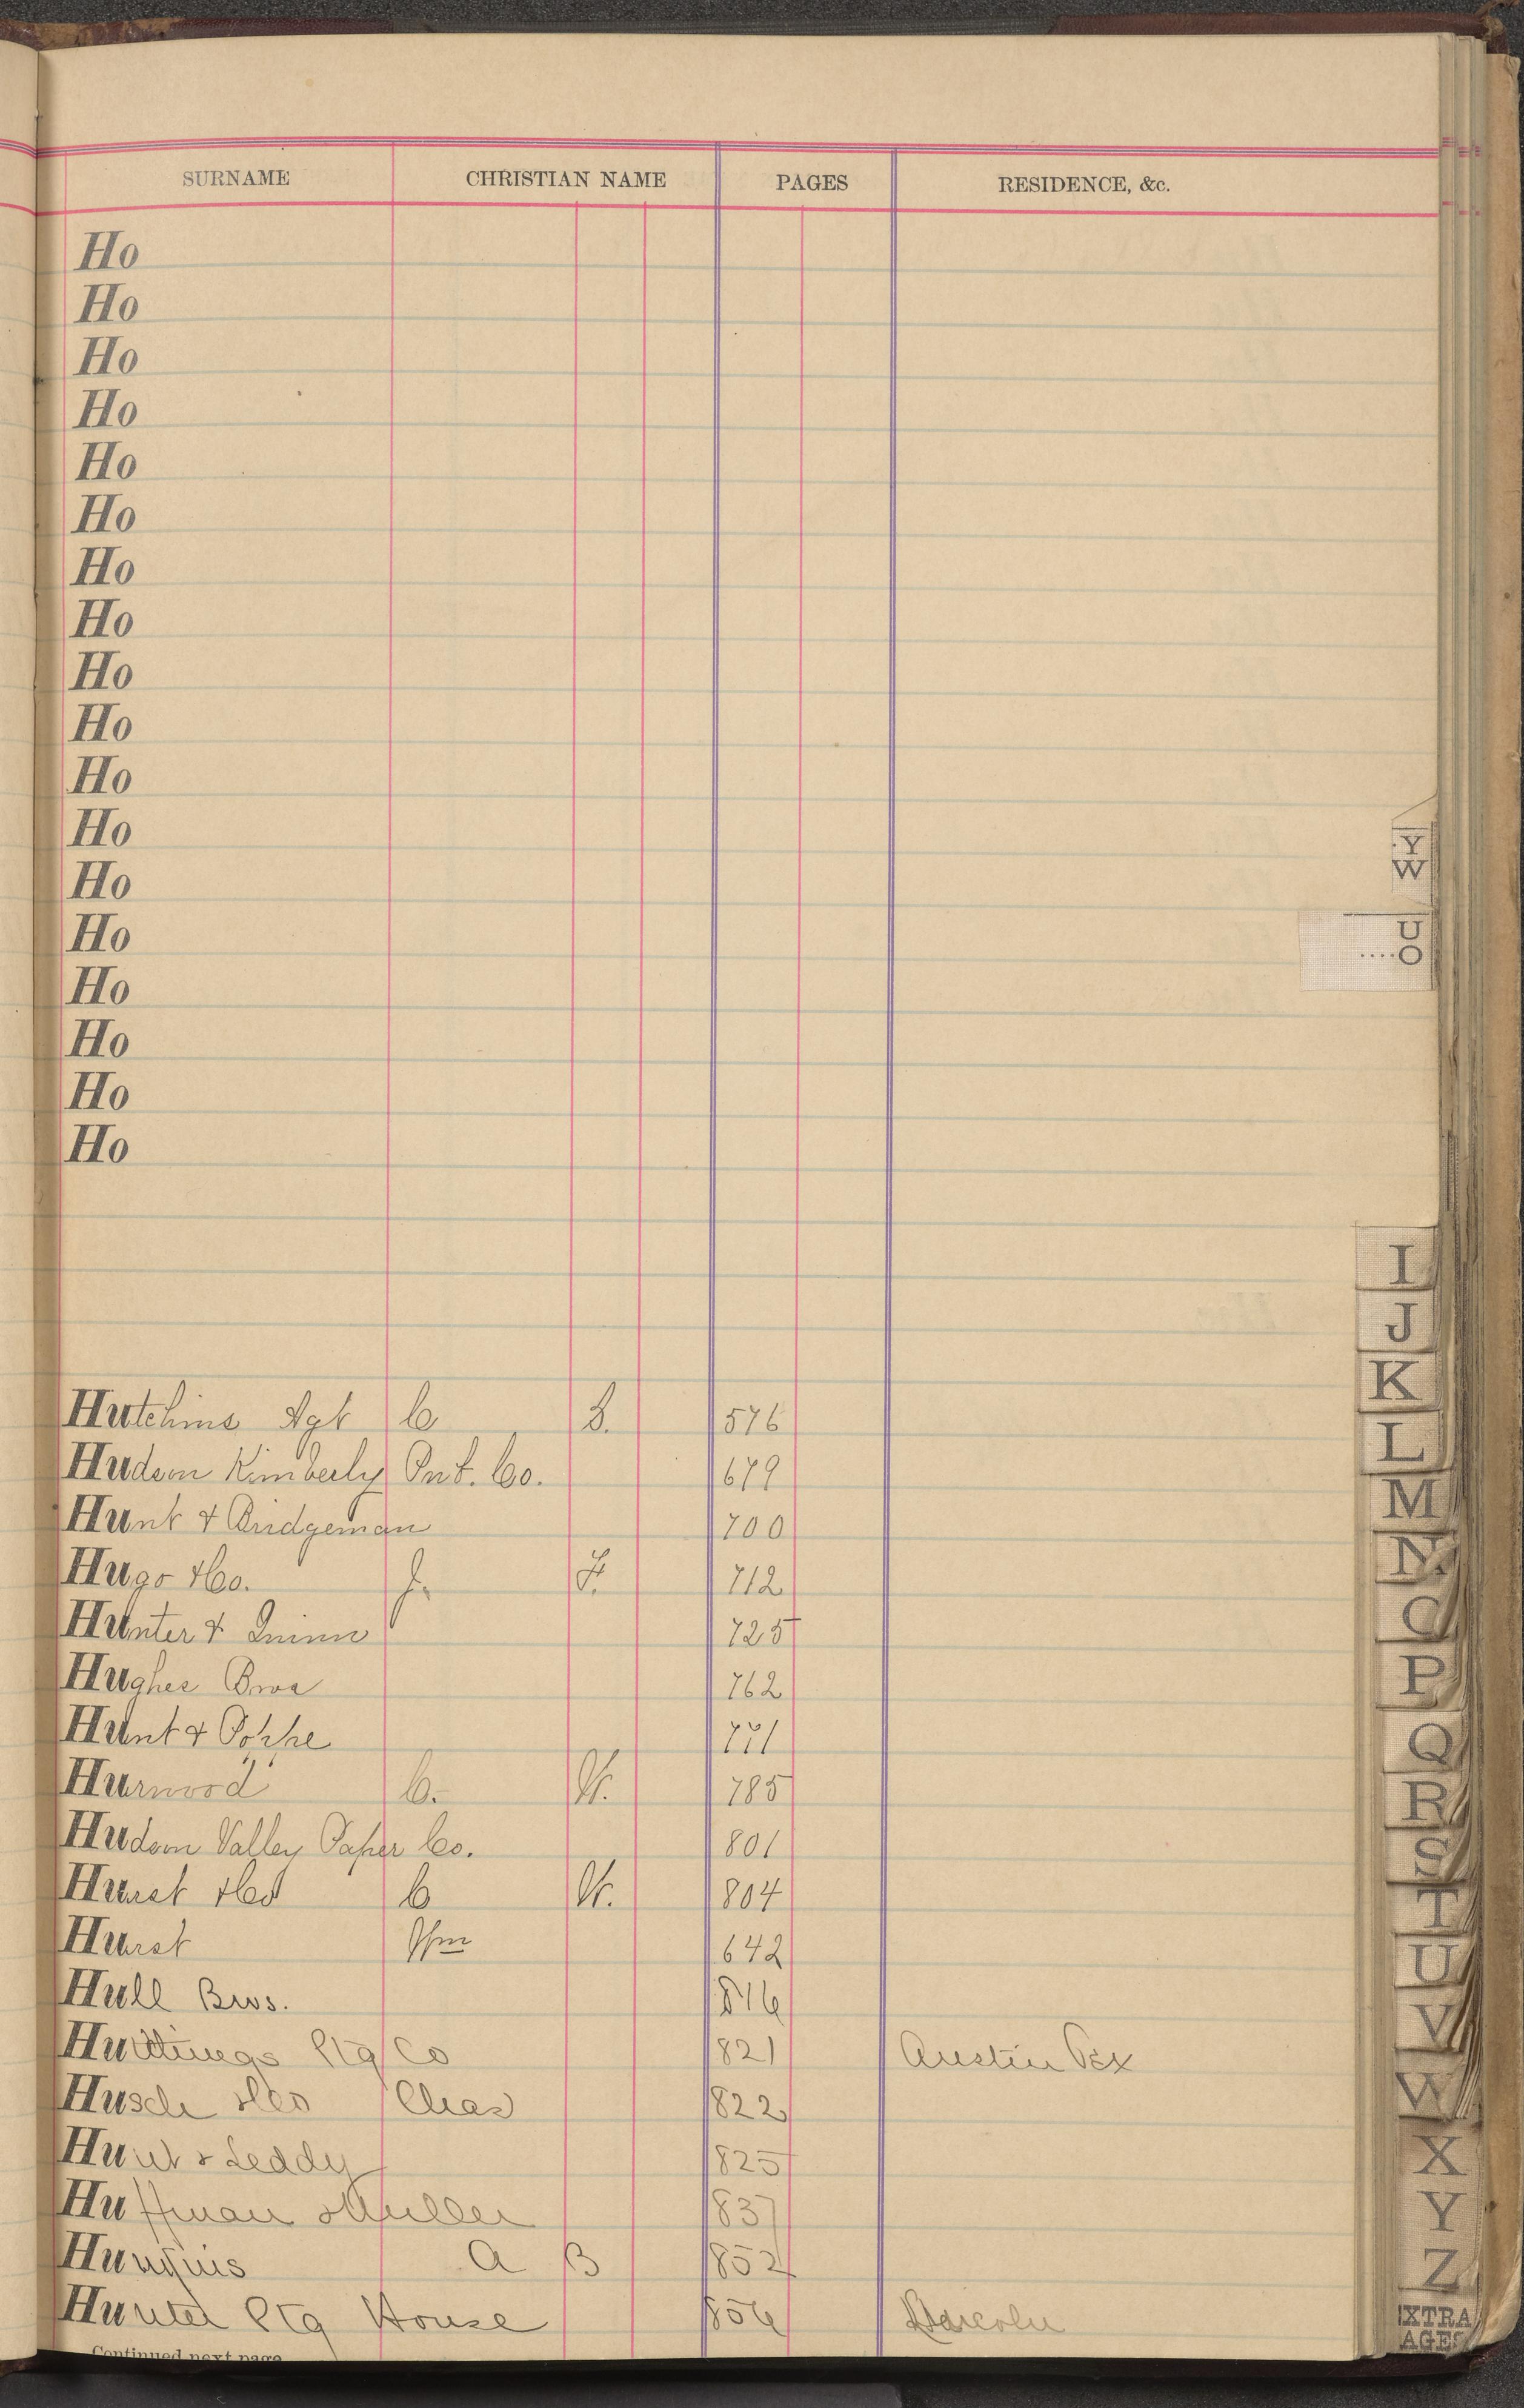 SURNAME CHRISTIAN NAME PAGES RESIDENCE, &c.
Ho
Ho
Ho
Ho
Ho
Ho
Ho
Ho
Ho
Ho
Ho
Ho
Ho
Ho
Ho
Ho
Ho
Ho
Hutchins Agt C S. 576
Hudson Kimberly Pnt. Co. 679
Hunt & Bridgeman 700
Hugo &Co. J. F. 712
Hunter & Quinn 725
Hughes Bros 762
Hunt & Poppe 771
Hurwood C. W. 785
Hudson Valley Paper Co. 801
Hurst &Co C W. 804
Hurst Wm 642
Hull Bros. 816
Hutchings Ptg Co 821 Austin Tex
Husch &Co Chas 822
Hunt & Leddy 825
Huffman & Muller 837
A B 852
Hunter Ptg House 856 Lincoln
Continued next page
Y
W
U
....O
I
J
K
L
M
N
O
P
Q
R
S
T
U
V
W
X
Y
Z
EXTRA
PAGES